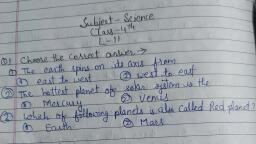 Subject - Science
Class - 4th
L - 11
Q1 Choose the correct answer →
① The earth spins on its axis from
① east to west ② west to east
② The hottest planet of solar system is the
① Mercury ② Venus
③ which of following planets is also called Red planet?
① Earth ② Mars